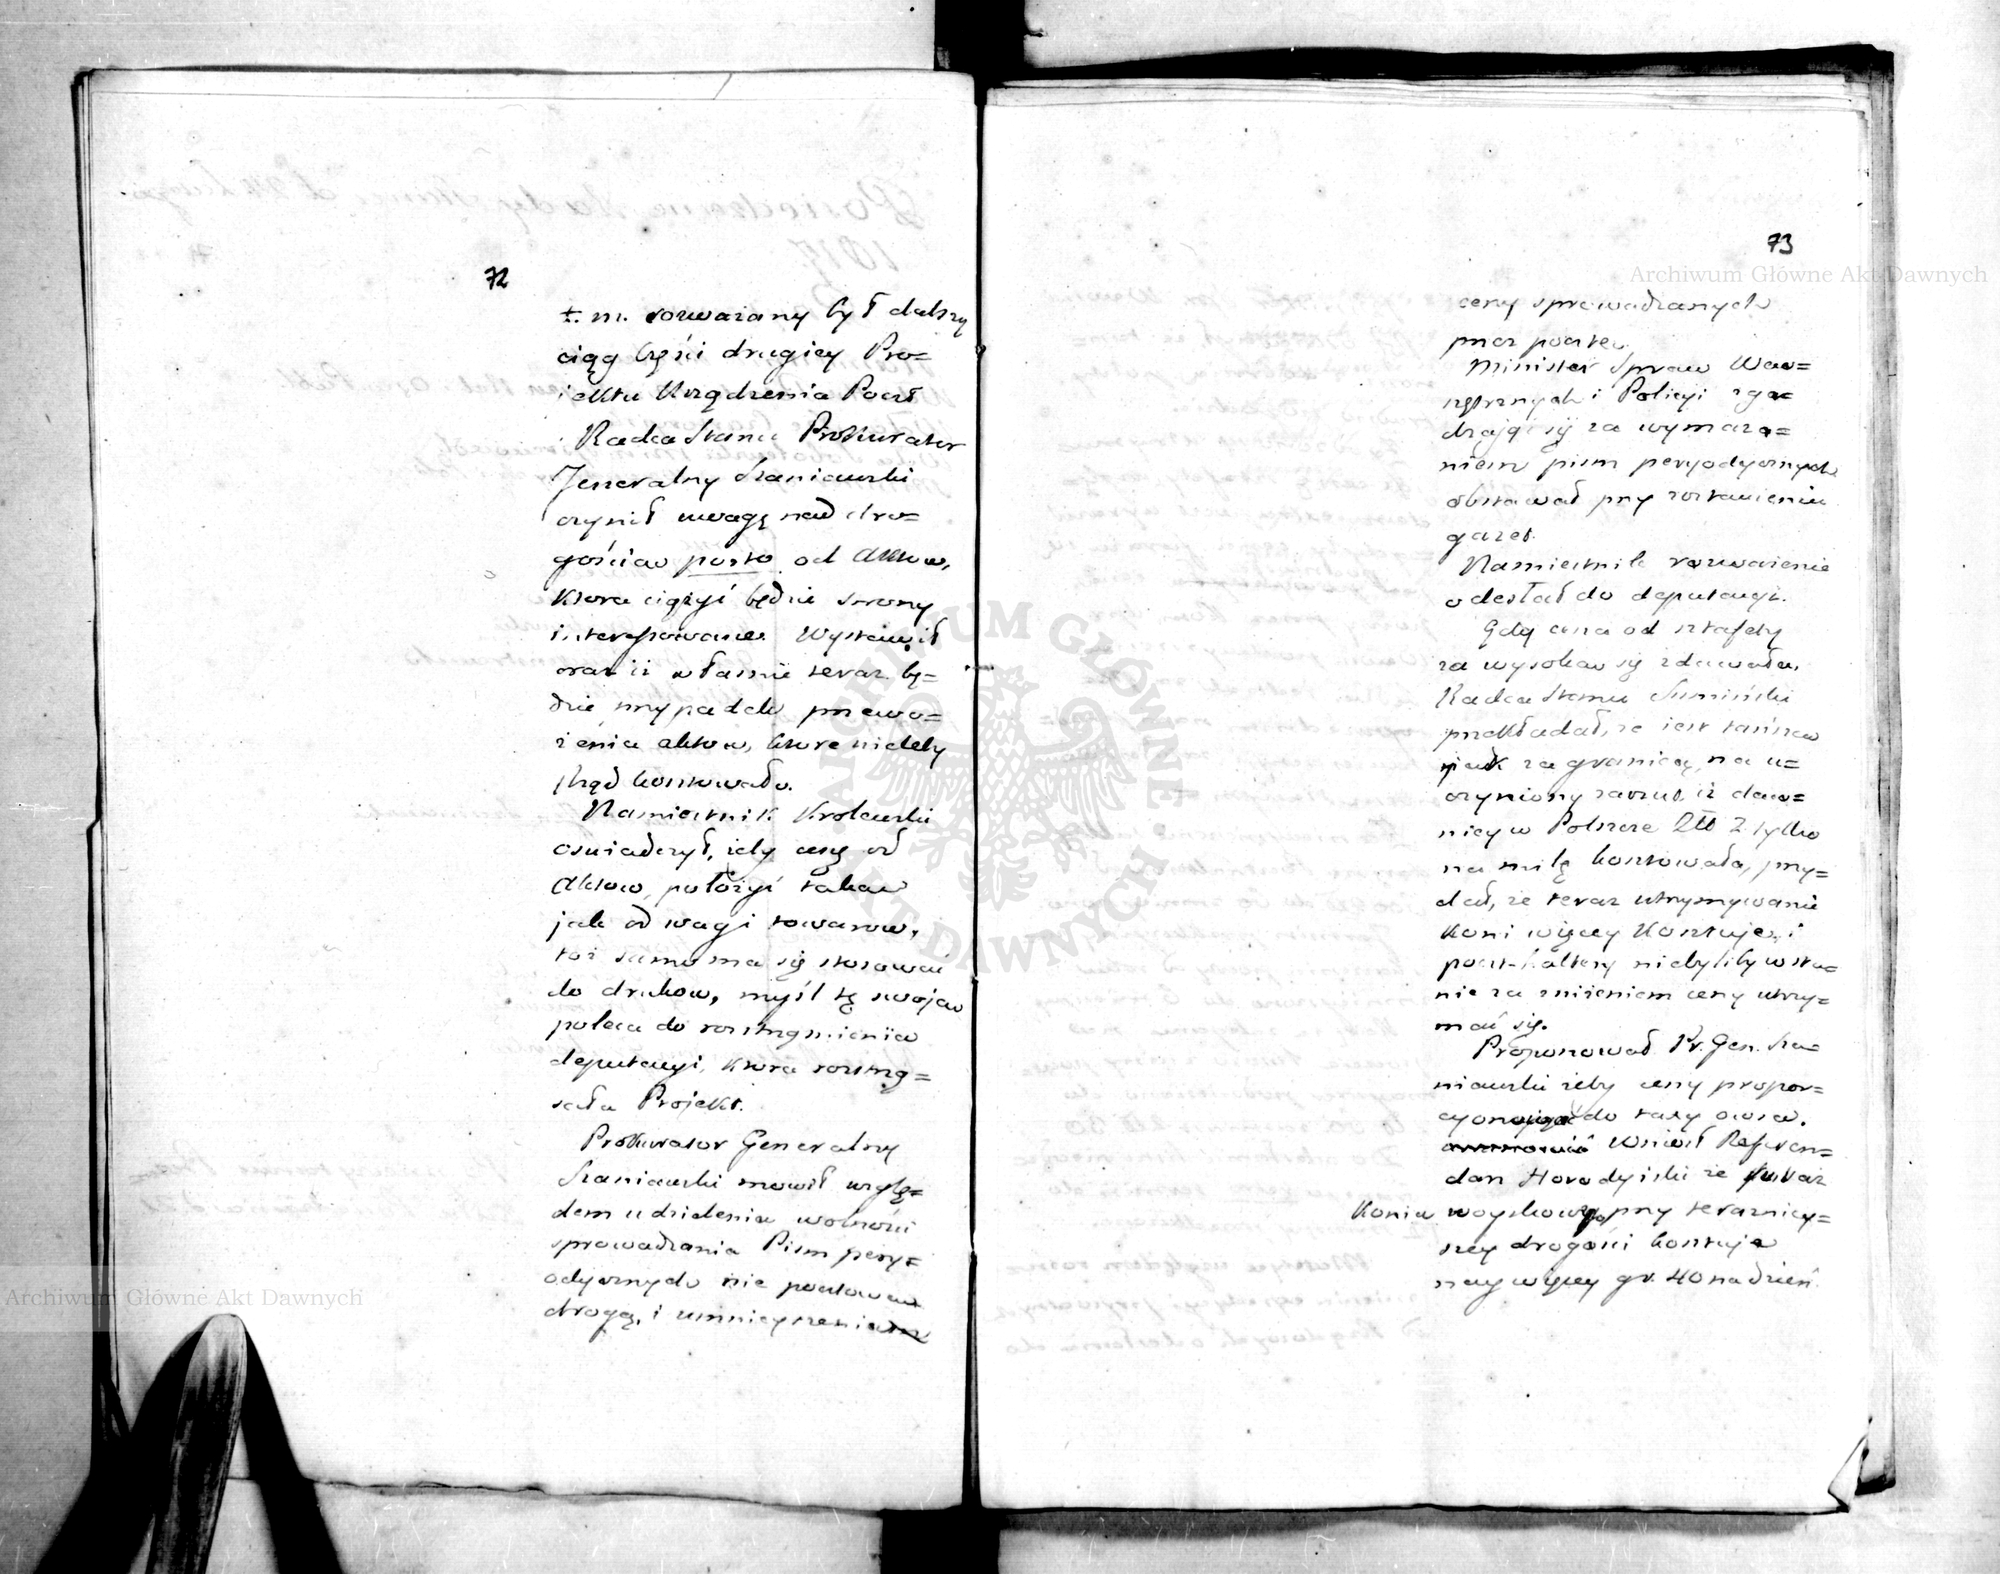 72
t. m. rozważany był dalszy
ciąg części drugiey Pro=
iektu Urządzenia Poczt
Radca Stanu Prokurator
Jeneralny Staniawski
czynił uwagę nad dro=
gością porto od Aktów,
ktora ciężyć będzie strony
interessowane. Wystawił
oraz iż właśnie teraz bę=
dzie przypadek przewo=
żenia aktow, ktore kiedyby
rząd kosztowało.
Namiestnik Krolewski
oswiadczył, żeby cenę od
Aktow położyć taką
jak od wagi towarow,
toż samo ma się stosować
do drukow, myśl tę swoją
poleca do rozstrzygnienia
deputacyi, ktora roztrzą=
sała Projekt.
Prokurator Generalny
Staniawski mowił wzglę=
dem udzielenia wolności
sprowadzania Pism pery=
odycznych nie pocztową
drogą, i umnieyszenia
73
ceny sprowadzanych
przez pocztę.
Minister Spraw Wew=
nętrznych i Policyi zga=
dzając się za wymaza=
niem pism peryodycznych
obstawał przy zostawieniu
gazet.
Namiestnik rozważenie
odesłał do deputacyi.
Gdy cena od sztafety
za wysoką się zdawała,
Radca Stanu Sumiński
przekładał, że iest tańsza
jak za granicą, na u=
czyniony zarzut, iż daw=
niey w Polszcze Zł 2 tylko
na milę kosztowała, przy=
dał, że teraz utrzymywanie
koni więcey kosztuje, i
poczt-haltery niebyliby w sta=
nie za zniżeniem ceny utrzy=
mać się.
Proponował Pr. Gen. Sta=
niawski żeby ceny propor=
cyonować do taxy owsa.
Wniosł Referen=
darz Horodyiski że furaż
konia woyskowego przy terazniey=
szey drogości kosztuje
naywięcey gr. 40 na dzień.
Archiwum Główne Akt Dawnych
Archiwum Główne Akt Dawnych
ARCHIWUM GŁÓWNE · AKT DAWNYCH ·